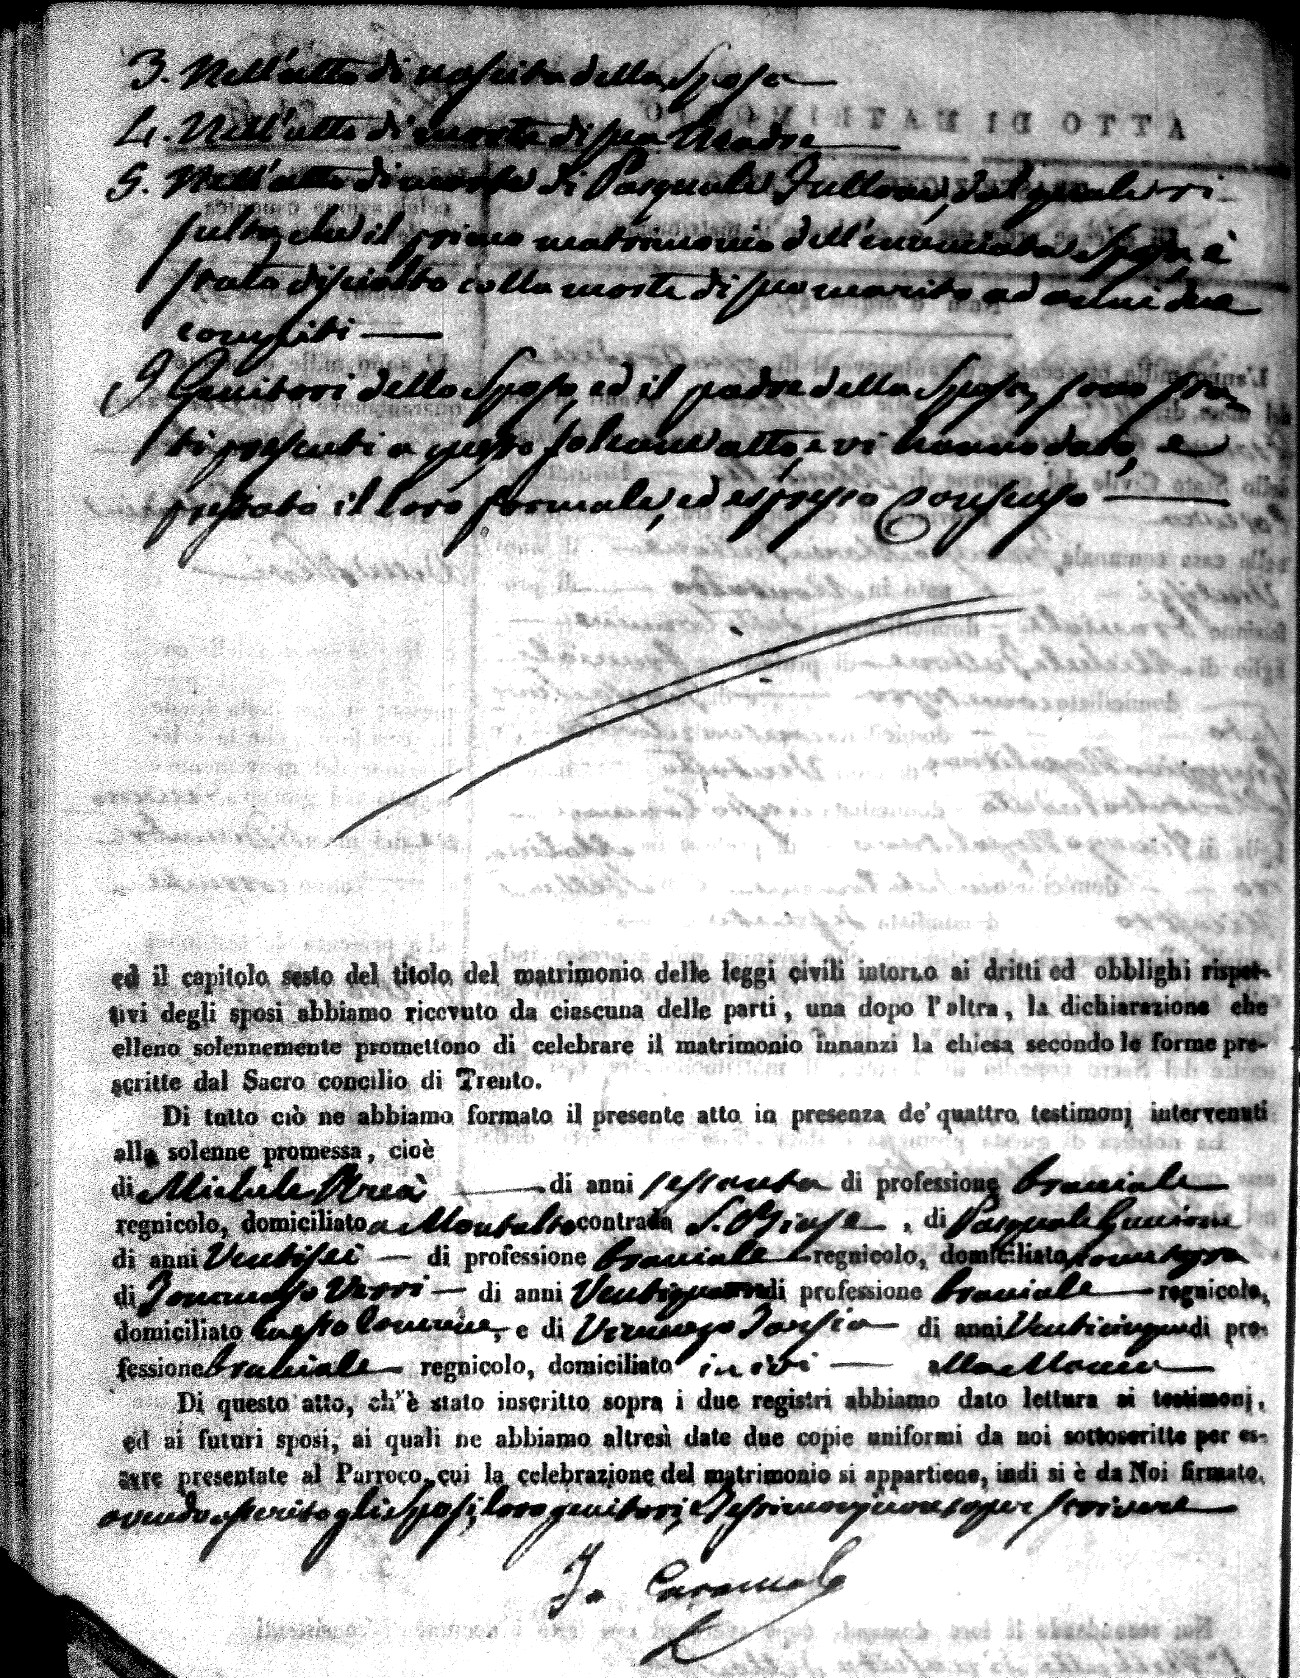 3. Nell'atto di nascita della Sposa
4. Nell'atto di morte di sua Madre
5. Nell'atto di morte di Pasquale Fullone, dal quale ri
sulta, che il primo matrimonio dell'enunciata Sposa, è
stato disciolto colla morte di suo marito ad anni due
compiti
I Genitori dello Sposo, ed il padre della Sposa, sono sta
ti presenti a questo solenne atto, e vi hanno dato, e
prestato il loro formale, ed espresso Consenso
ed il capitolo sesto del titolo del matrimonio delle leggi civili intorno ai dritti ed obblighi rispet-
tivi degli sposi abbiamo ricevuto da ciascuna delle parti, una dopo l'altra, la dichiarazione che
elleno solennemente promettono di celebrare il matrimonio innanzi la chiesa secondo le forme pre-
scritte dal Sacro concilio di Trento.
Di tutto ciò ne abbiamo formato il presente atto in presenza de' quattro testimonj intervenuti
alla solenne promessa, cioè
di Michele di anni sessanta di professione braciale
regnicolo, domiciliato a Montalto contrada S. Biase, di Pasquale
di anni Ventisei di professione braciale regnicolo, domiciliato come sopra
di Tommaso Verri di anni di professione braciale regnicolo,
domiciliato in questo Comune, e di Vincenzo Tarsia di anni Venticinque di pro-
fessione braciale regnicolo, domiciliato in ivi
Di questo atto, ch'è stato inscritto sopra i due registri abbiamo dato lettura ai testimonj,
ed ai futuri sposi, ai quali ne abbiamo altresì date due copie uniformi da noi sottoscritte per es-
sere presentate al Parroco, cui la celebrazione del matrimonio si appartiene, indi si è da Noi firmato,
avendo asserito gli Sposi, loro genitori, e Testimonj non saper scrivere